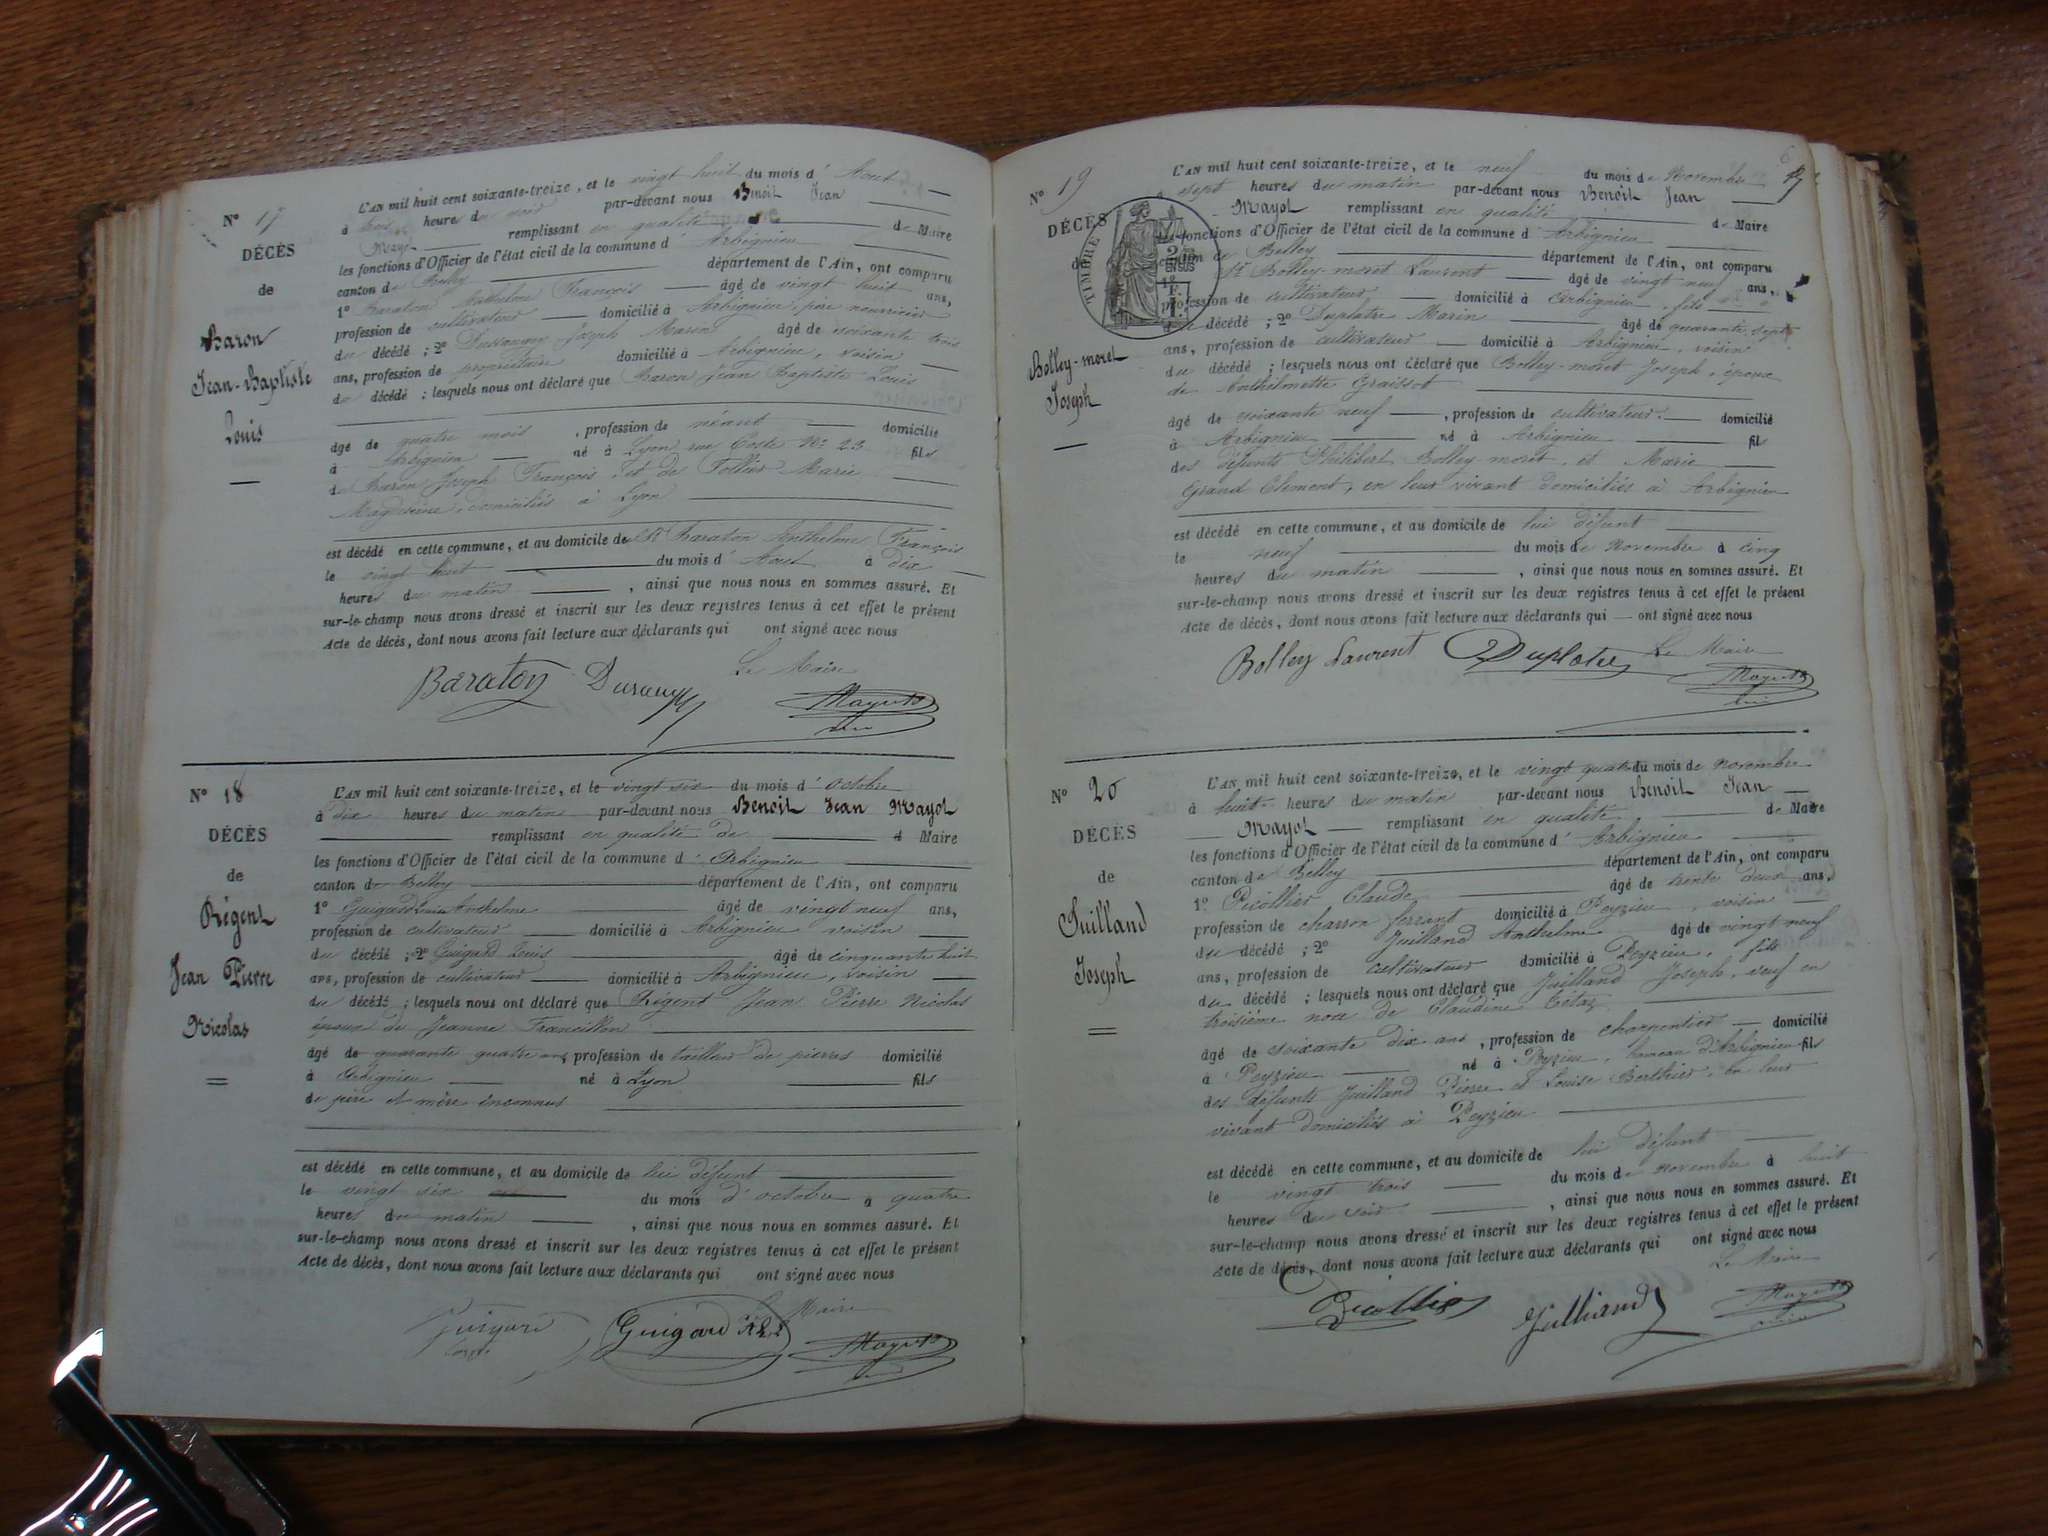 N° 17
DÉCÈS
de
Baron
Jean-Baptiste
Louis
L'AN mil huit cent soixante-treize, et le vingt huit du mois d'Aout
à trois heure du soir par-devant nous Benoit Jean
Mayot remplissant en qualité de Maire
les fonctions d'Officier de l'état civil de la commune d'Arbignieu
canton de Belley département de l'Ain, ont comparu
1° Baraton Anthelme François âgé de vingt huit ans,
profession de cultivateur domicilié à Arbignieu, père nourricier
du décédé ; 2° Dusaugey Joseph Marin âgé de soixante trois
ans, profession de propriétaire domicilié à Arbignieu, voisin
du décédé ; lesquels nous ont déclaré que Baron Jean Baptiste Louis
âgé de quatre mois, profession de néant domicilié
à Arbignieu né à Lyon rue Coste N° 23 fils
de Baron Joseph François et de Follier Marie
Magdeleine, domiciliés à Lyon
est décédé en cette commune, et au domicile de Sr Baraton Anthelme François
le vingt huit du mois d'Aout à dix
heures du matin, ainsi que nous nous en sommes assuré. Et
sur-le-champ nous avons dressé et inscrit sur les deux registres tenus à cet effet le présent
Acte de décès, dont nous avons fait lecture aux déclarants qui ont signé avec nous
Le Maire
Baraton
N° 18
DÉCÈS
de
Régent
Jean Pierre
Nicolas
L'AN mil huit cent soixante-treize, et le vingt six du mois d'octobre
à dix heures du matin par-devant nous Benoit Jean Mayot
remplissant en qualité de d Maire
les fonctions d'Officier de l'état civil de la commune d'Arbignieu
canton de Belley département de l'Ain, ont comparu
1° Guigard Louis Anthelme âgé de vingt neuf ans,
profession de cultivateur domicilié à Arbignieu voisin
du décédé ; 2° Guigard Louis âgé de cinquante huit
ans, profession de cultivateur domicilié à Arbignieu, voisin
du décédé ; lesquels nous ont déclaré que Régent Jean Pierre Nicolas
époux de Jeanne Francillon
âgé de quarante quatre ans, profession de tailleur de pierres domicilié
à Arbignieu né à Lyon fils
de père et mère inconnus
est décédé en cette commune, et au domicile de lui défunt
le vingt six du mois d'octobre à quatre
heures du matin, ainsi que nous nous en sommes assuré. Et
sur-le-champ nous avons dressé et inscrit sur les deux registres tenus à cet effet le présent
Acte de décès, dont nous avons fait lecture aux déclarants qui ont signé avec nous
Le Maire
Guigard
N° 19
DÉCÈS
de
TIMBRE
Bolley-moret
Joseph
L'AN mil huit cent soixante-treize, et le neuf du mois de Novembre
sept heures du matin par-devant nous Benoit Jean
Mayot remplissant en qualité de Maire
les fonctions d'Officier de l'état civil de la commune d'Arbignieu
canton de Belley département de l'Ain, ont comparu
1° Sr Bolley-moret Laurent âgé de vingt neuf ans,
profession de cultivateur domicilié à Arbignieu, fils
du décédé ; 2° Duplatre Marin âgé de quarante sept
ans, profession de cultivateur domicilié à Arbignieu, voisin
du décédé ; lesquels nous ont déclaré que Bolley-moret Joseph, époux
de Anthelmette Graissot
âgé de soixante neuf, profession de cultivateur domicilié
à Arbignieu né à Arbignieu fils
des défunts Philibert Bolley-moret, et Marie
Grand Clement, en leur vivant domiciliés à Arbignieu
est décédé en cette commune, et au domicile de lui défunt
le neuf du mois de Novembre à cinq
heures du matin, ainsi que nous nous en sommes assuré. Et
sur-le-champ nous avons dressé et inscrit sur les deux registres tenus à cet effet le présent
Acte de décès, dont nous avons fait lecture aux déclarants qui ont signé avec nous
Bolley Laurent Duplatre Le Maire
N° 20
DÉCÈS
de
Juilland
Joseph
L'AN mil huit cent soixante-treize, et le vingt quatre du mois de novembre
à huit heures du matin par-devant nous Benoit Jean
Mayot remplissant en qualité de Maire
les fonctions d'Officier de l'état civil de la commune d'Arbignieu
canton de Belley département de l'Ain, ont comparu
1° Picollier Claude âgé de trente deux ans,
profession de charron ferrant domicilié à Peyzieu, voisin
du décédé ; 2° Juilland Anthelme âgé de vingt neuf
ans, profession de cultivateur domicilié à Peyzieu, fils
du décédé ; lesquels nous ont déclaré que Juilland Joseph, veuf en
troisième noce de Claudine
âgé de soixante dix ans, profession de charpentier domicilié
à Peyzieu né à Peyzieu, hameau d'Arbignieu fils
des défunts Juilland Pierre et Louise Berthier, en leur
vivant domiciliés à Peyzieu
est décédé en cette commune, et au domicile de lui défunt
le vingt trois du mois de novembre à huit
heures du soir, ainsi que nous nous en sommes assuré. Et
sur-le-champ nous avons dressé et inscrit sur les deux registres tenus à cet effet le présent
Acte de décès, dont nous avons fait lecture aux déclarants qui ont signé avec nous
Le Maire
Picollier Juilliand